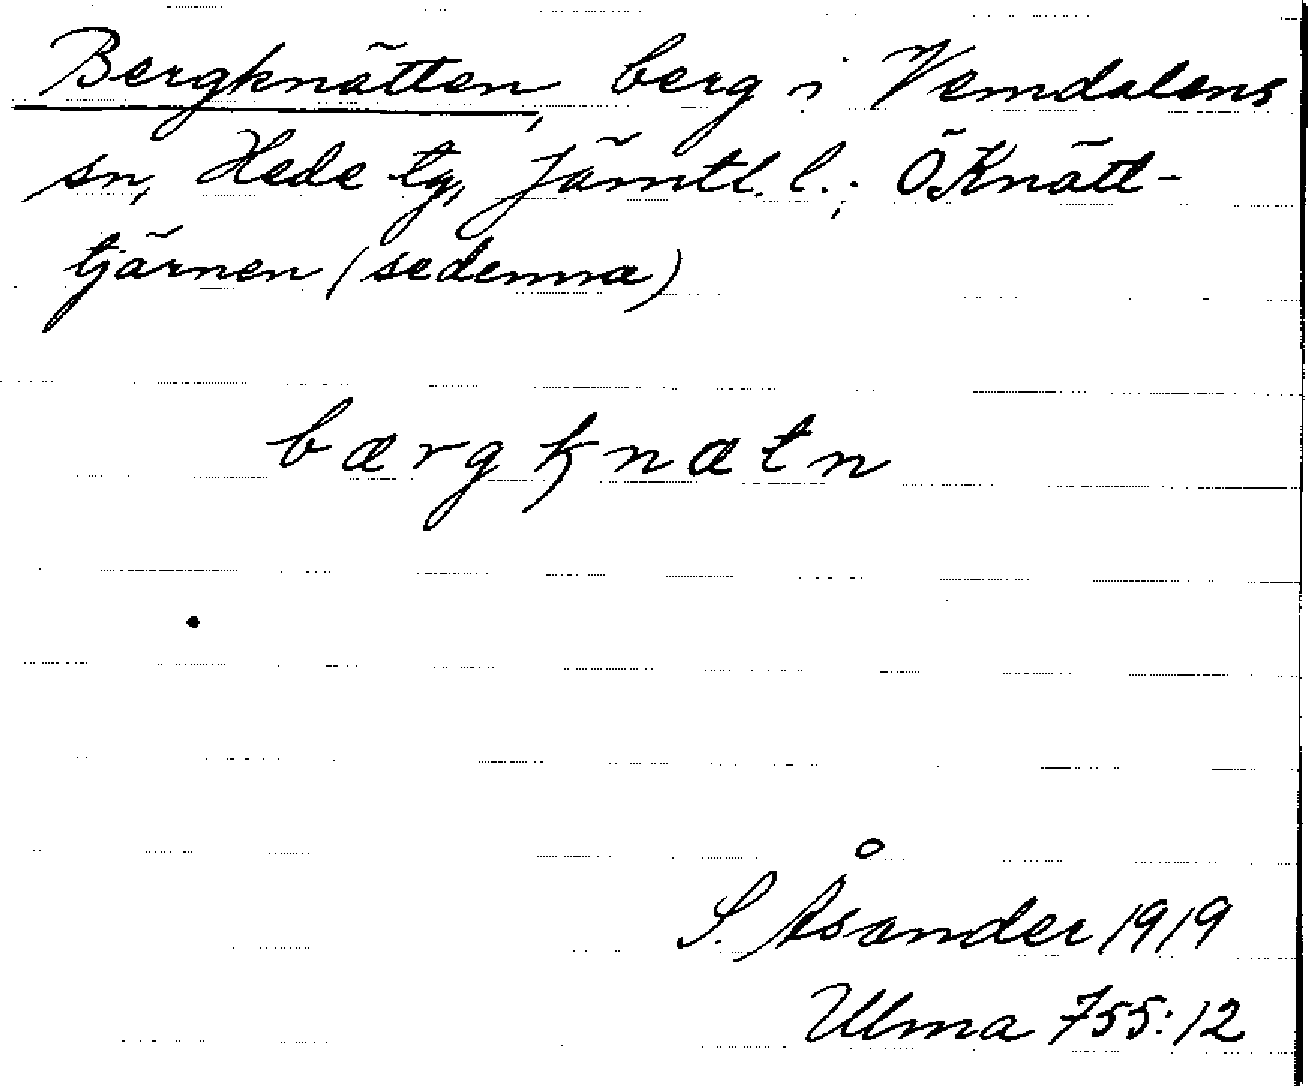 Bergknätten, berg i Vemdalens
sn, Hede tg, Jämtl. l.; Ö Knätt-
tjärnen (sedermera)
bærgknætn
S. Åsander 1919
Ulma 755:12